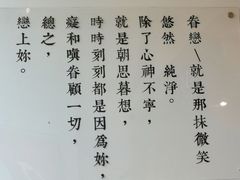 眷戀\就是那抹微笑
悠然 純淨。
除了心神不寧，
就是朝思暮想，
時時刻刻都是因為妳，
癡和嗔眷顧一切，
總之，
戀上妳。